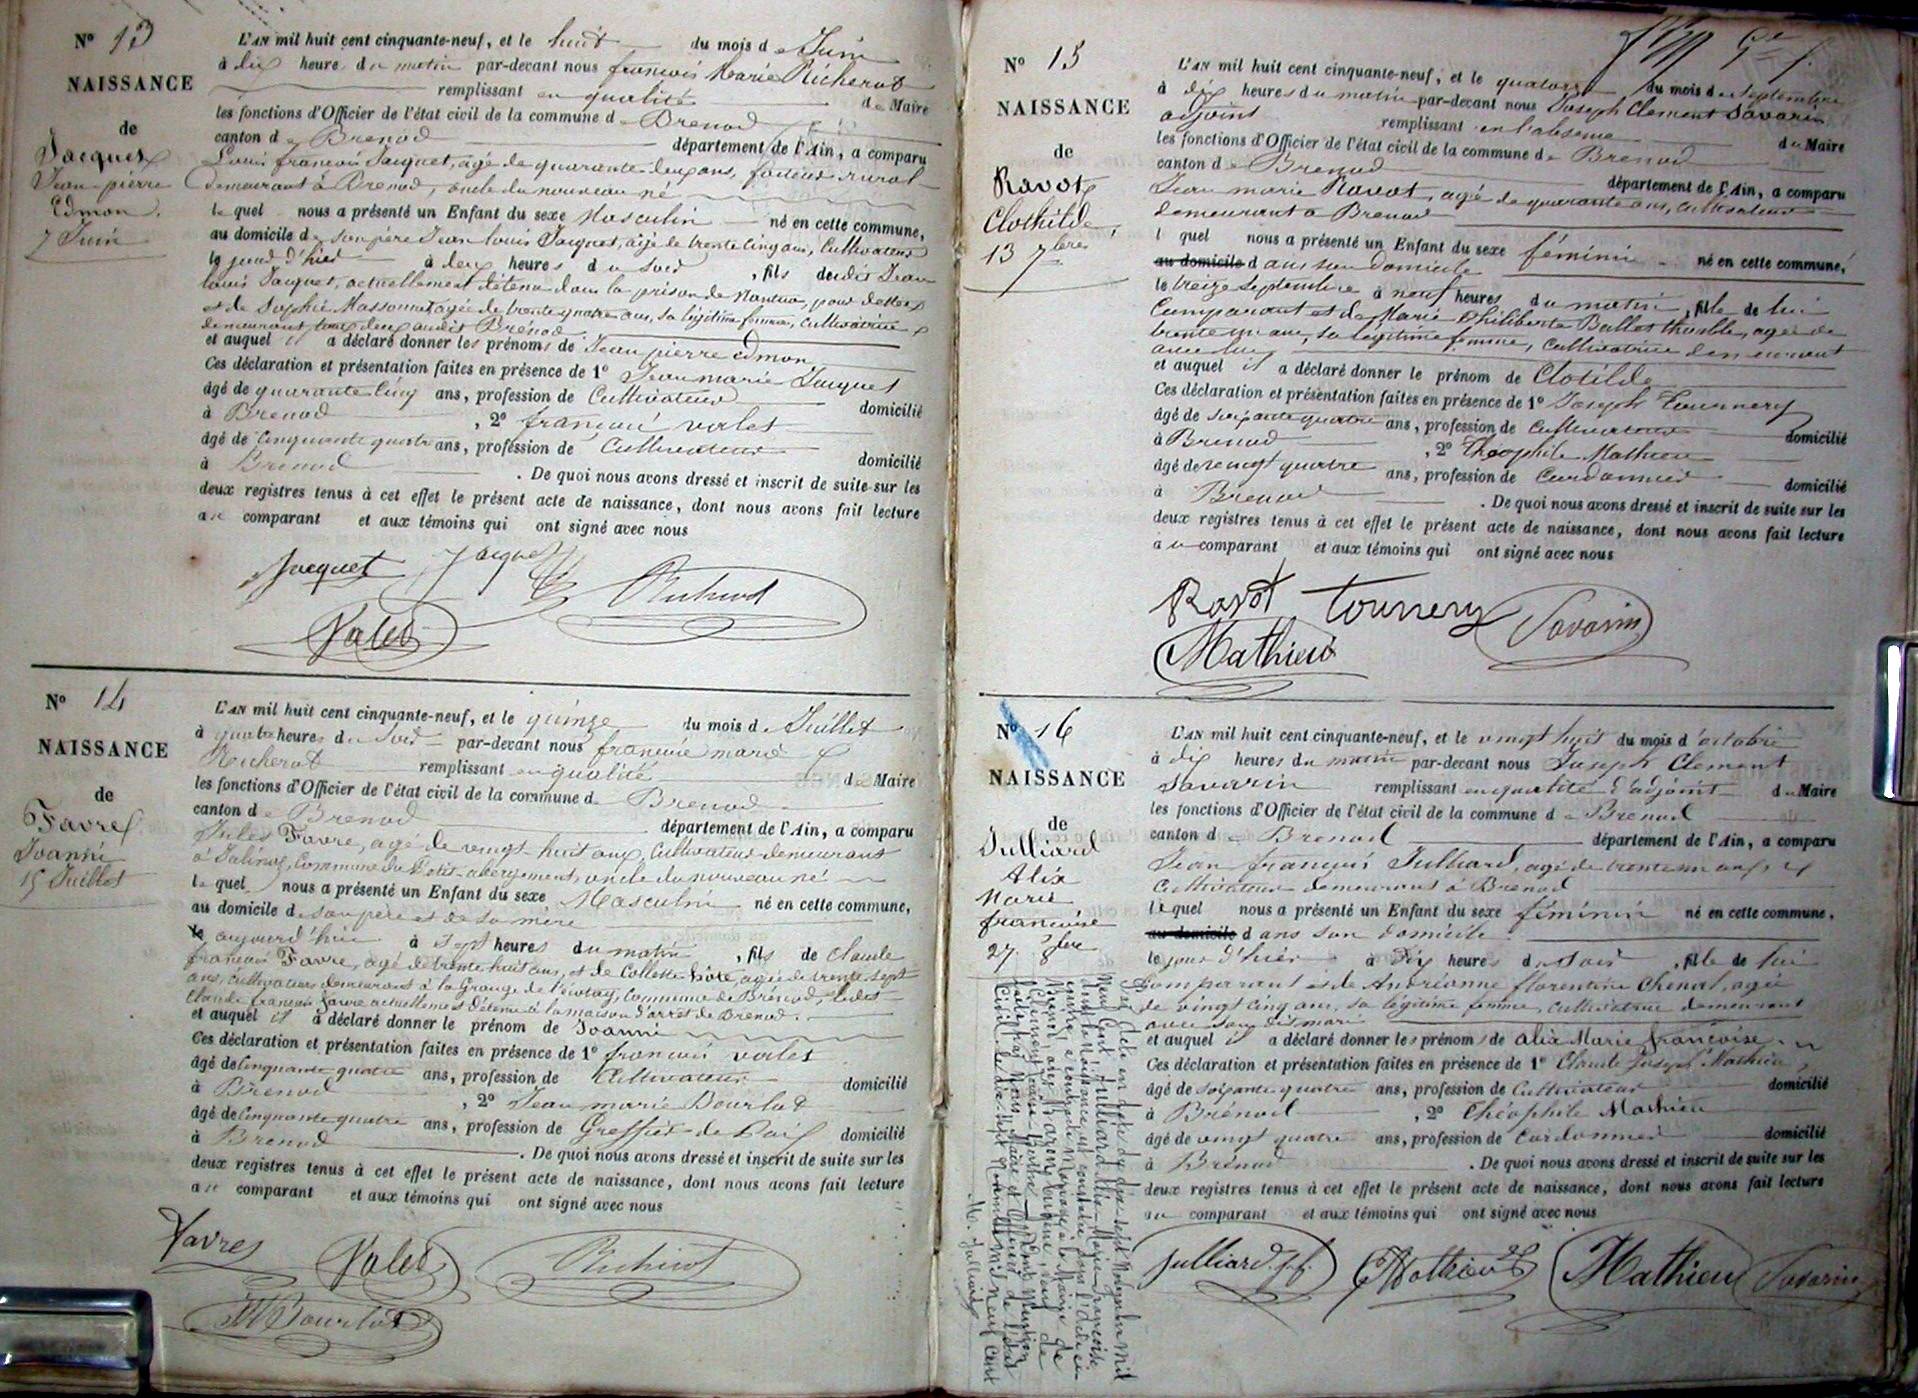 N° 13
NAISSANCE
de
Jacquet
Jean-pierre
Edmon.
7 Juin
L'AN mil huit cent cinquante-neuf, et le huit du mois de Juin
à dix heure du matin par-devant nous françois Marie Richerot
remplissant en qualité de Maire
les fonctions d'Officier de l'état civil de la commune de Brenod
canton de Brenod département de l'Ain, a comparu
Louis françois Jacquet, agé de quarante deux ans, facteur rural
demeurant à Brenod, oncle du nouveau né
lequel nous a présenté un Enfant du sexe Masculin né en cette commune,
au domicile de son père Jean louis Jacquet, agé de trente cinq ans, Cultivateur
le jour d'hier à deux heures du soir, fils dudit Jean
louis Jacquet, actuellement détenu dans la prison de Nantua, pour dettes
et de Sophie Massonnet agée de trente quatre ans, sa légitime femme, cultivatrice
demeurant tous deux audit Brénod
et auquel il a déclaré donner les prénoms de Jean pierre edmon
Ces déclaration et présentation faites en présence de 1° Jean marie Jacquet
âgé de quarante cinq ans, profession de Cultivateur domicilié
à Brenod, 2° françois valet
âgé de cinquante quatre ans, profession de Cultivateur domicilié
à Brenod. De quoi nous avons dressé et inscrit de suite sur les
deux registres tenus à cet effet le présent acte de naissance, dont nous avons fait lecture
au comparant et aux témoins qui ont signé avec nous
Jacquet Jacquet Richerot
Valet
N° 14
NAISSANCE
de
Favre
Joanni
15 Juillet
L'AN mil huit cent cinquante-neuf, et le quinze du mois de Juillet
à quatre heures du soir par-devant nous françois marie
Richerot remplissant en qualité de Maire
les fonctions d'Officier de l'état civil de la commune de Brenod
canton de Brenod département de l'Ain, a comparu
Jules Favre, agé de vingt-huit ans, Cultivateur demeurant
à Jalinas, Commune du Petit-abergement, oncle du nouveau né
lequel nous a présenté un Enfant du sexe Masculin né en cette commune,
au domicile de son père et de sa mère
le aujourd'hui à sept heures du matin, fils de Claude
françois Favre, agé de trente huit ans, et de Collette agée de trente sept
ans, cultivateurs demeurant à la Grange de Commune de Brenod, ledit
Claude françois Favre actuellement détenu à la maison d'arrêt de Brenod.
et auquel il a déclaré donner le prénom de Joanni
Ces déclaration et présentation faites en présence de 1° françois valet
âgé de Cinquante quatre ans, profession de Cultivateur domicilié
à Brenod, 2° Jean marie Bourlot
âgé de Cinquante quatre ans, profession de Greffier de Paix domicilié
à Brenod. De quoi nous avons dressé et inscrit de suite sur les
deux registres tenus à cet effet le présent acte de naissance, dont nous avons fait lecture
au comparant et aux témoins qui ont signé avec nous
Favre Valet Richerot
JM Bourlot
N° 15
NAISSANCE
de
Ravot
Clothilde,
13 7bre
L'AN mil huit cent cinquante-neuf, et le quatorze du mois de Septembre
à dix heures du matin par-devant nous Joseph Clement Savarin
adjoint remplissant en l'absence du Maire
les fonctions d'Officier de l'état civil de la commune de Brenod
canton de Brenod département de l'Ain, a comparu
Jean marie Ravot, agé de quarante ans, cultivateur
demeurant à Brenod
l quel nous a présenté un Enfant du sexe féminin né en cette commune,
au domicile dans son domicile
le treize septembre à neuf heures du matin, fille de lui
Comparant et de Marie Philiberte Ballet thouble, agée de
trente un ans, sa légitime femme, cultivatrice demeurant
avec lui
et auquel il a déclaré donner le prénom de Clotilde
Ces déclaration et présentation faites en présence de 1° Joseph Tournery
âgé de soixante quatre ans, profession de Cultivateur domicilié
à Brenod, 2° Théophile Mathieu
âgé de vingt quatre ans, profession de Cordonnier domicilié
à Brenod. De quoi nous avons dressé et inscrit de suite sur les
deux registres tenus à cet effet le présent acte de naissance, dont nous avons fait lecture
au comparant et aux témoins qui ont signé avec nous
Ravot Tournery Savarin
Mathieu
N° 16
NAISSANCE
de
Julliard
Alix
Marie
françoise
27 8bre
L'AN mil huit cent cinquante-neuf, et le vingt huit du mois d'octobre
à dix heures du matin par-devant nous Joseph Clement
Savarin remplissant en qualité d'adjoint du Maire
les fonctions d'Officier de l'état civil de la commune de Brenod
canton de Brenod département de l'Ain, a comparu
Jean françois Julliard, agé de trente un ans,
Cultivateur demeurant à Brenod
lequel nous a présenté un Enfant du sexe féminin né en cette commune,
au domicile dans son domicile
le jour d'hier à dix heures du soir, fille de lui
Comparant et de Andréanne florentine Chenal, agée
de vingt cinq ans, sa légitime femme, cultivatrice demeurant
avec son dit mari
et auquel il a déclaré donner les prénoms de alix Marie françoise
Ces déclaration et présentation faites en présence de 1° Claude Joseph Mathieu,
âgé de soixante quatre ans, profession de Cultivateur domicilié
à Brenod, 2° Théophile Mathieu
âgé de vingt quatre ans, profession de Cordonnier domicilié
à Brenod. De quoi nous avons dressé et inscrit de suite sur les
deux registres tenus à cet effet le présent acte de naissance, dont nous avons fait lecture
au comparant et aux témoins qui ont signé avec nous
Julliard. J.f. Mathieu Mathieu Savarin